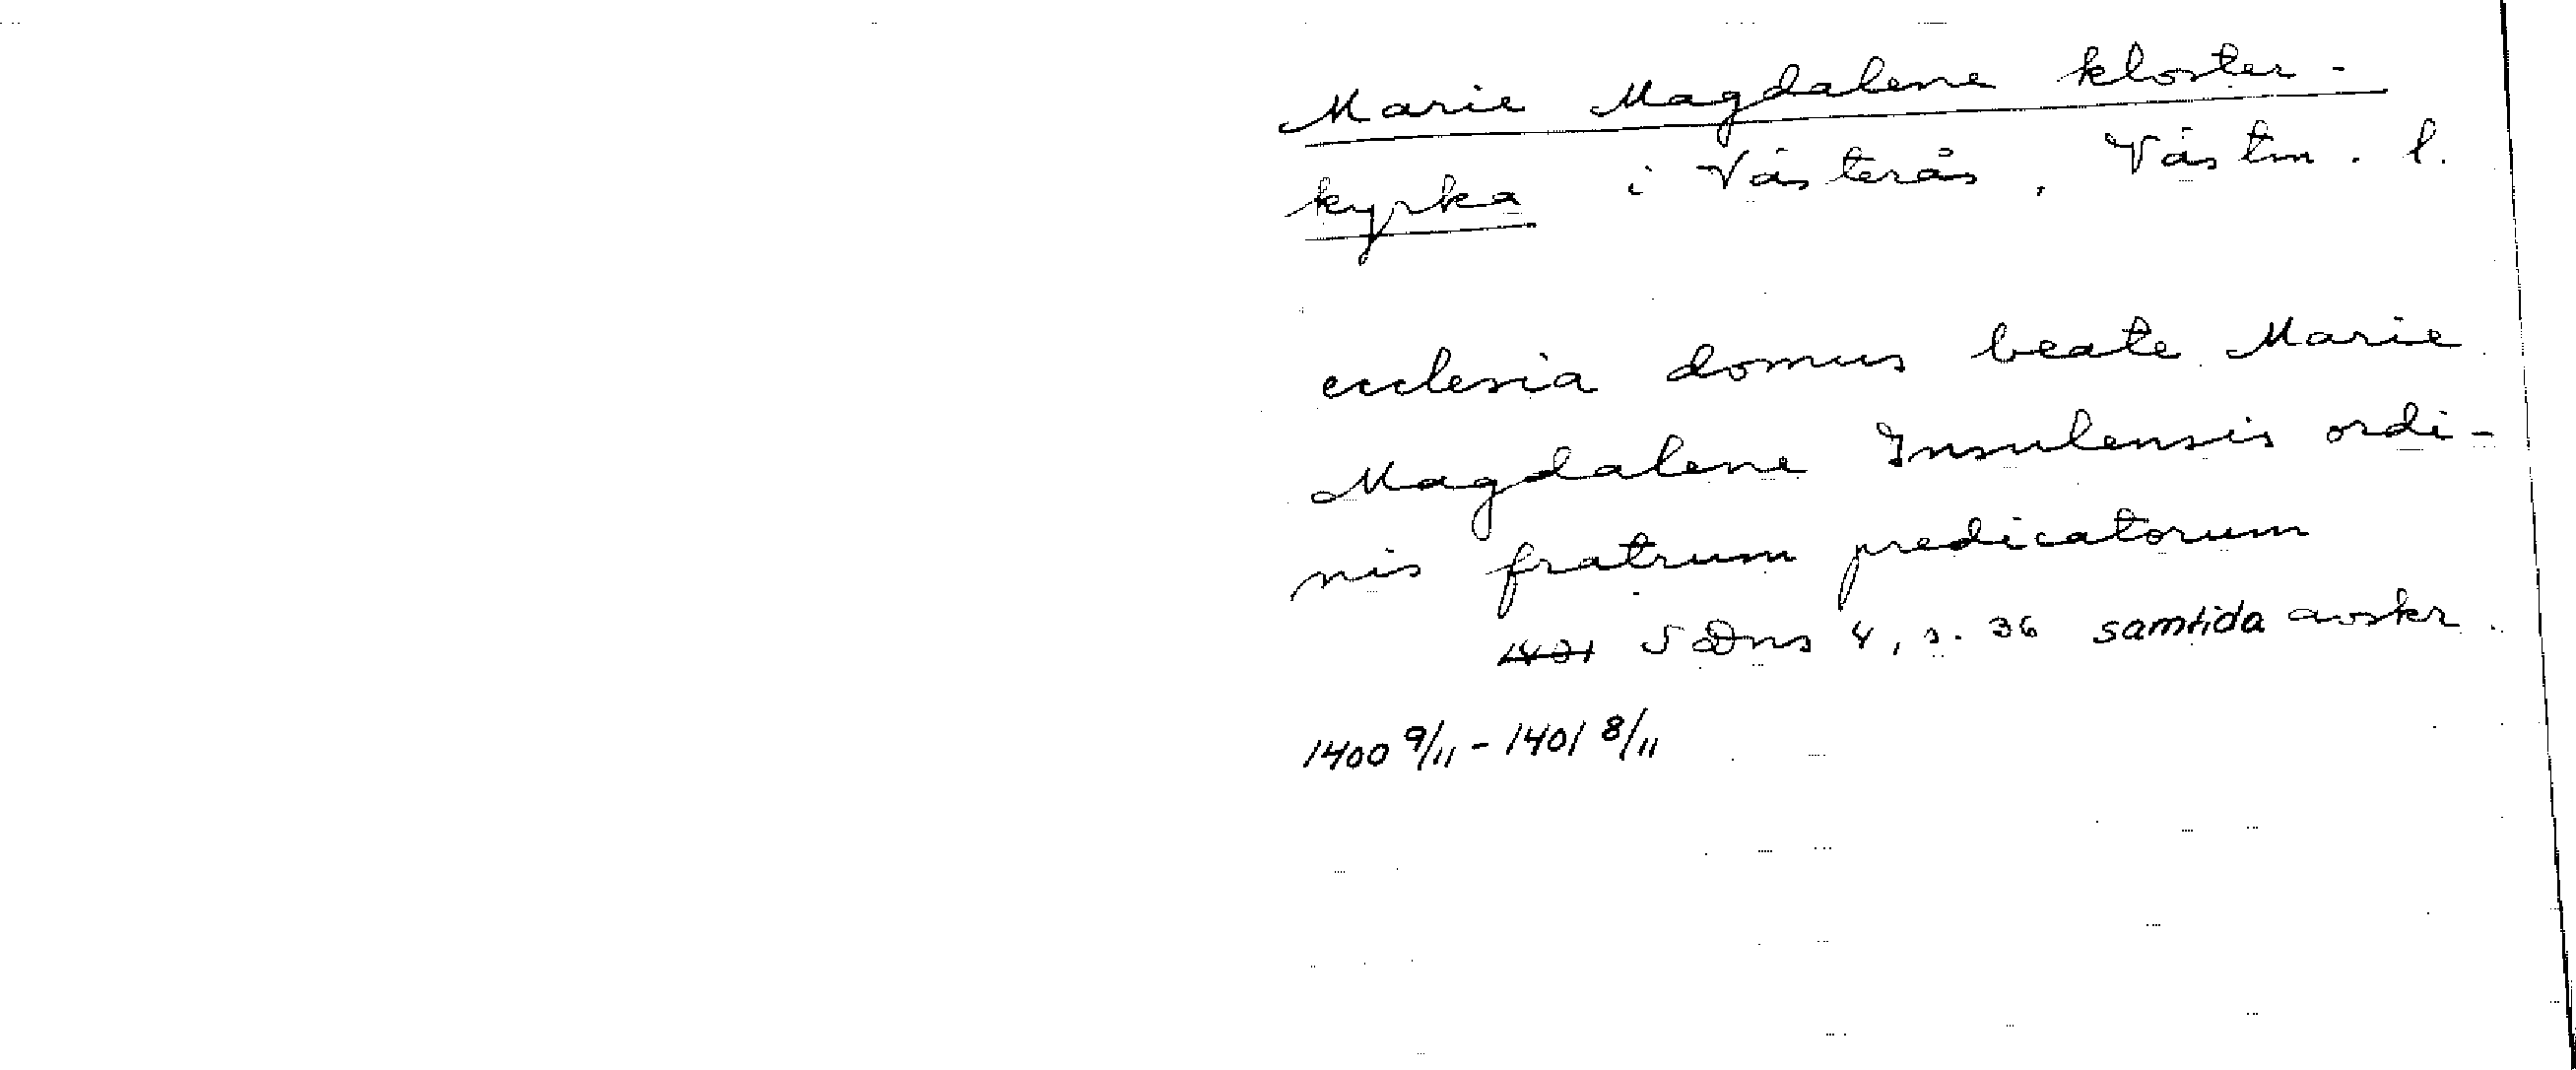 Marie Magdalene kloster-
kyrka i Västerås, Västm. l.
ecclesia domus beate Marie
Magdalene Insulensis ordi-
nis fratrum predicatorum
1401 SDns 4, s. 36 samtida avskr.
1400 9/11 - 1401 8/11